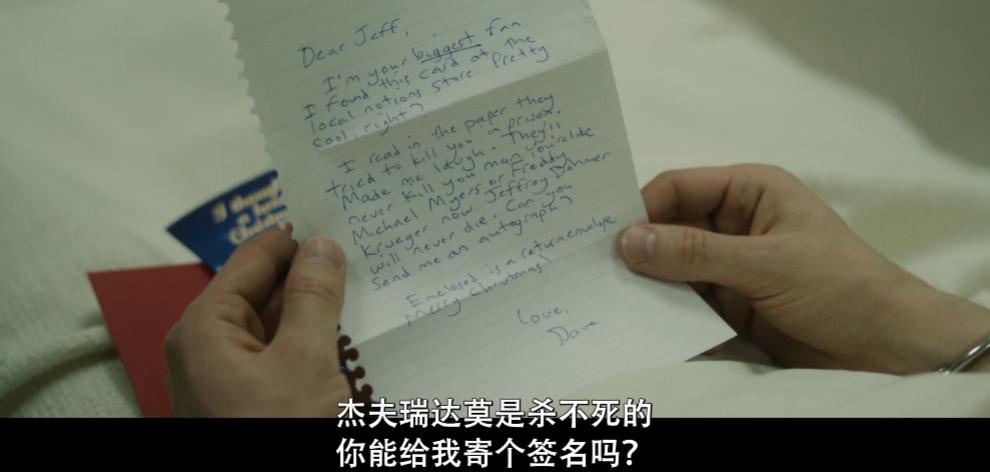 Dear Jeff,
I'm your biggest fan.
I found this card at the
local notions store. Pretty
cool, right?
I read in the paper they
tried to kill you in prison.
Made me laugh. They'll
never kill you man. You're like
Michael Myers or Freddy
Krueger now. Jeffrey Dahmer
will never die. Can you
send me an autograph?
Enclosed is a return envelope
Merry Christmas!
Love,
Dave
杰夫瑞达莫是杀不死的
你能给我寄个签名吗？